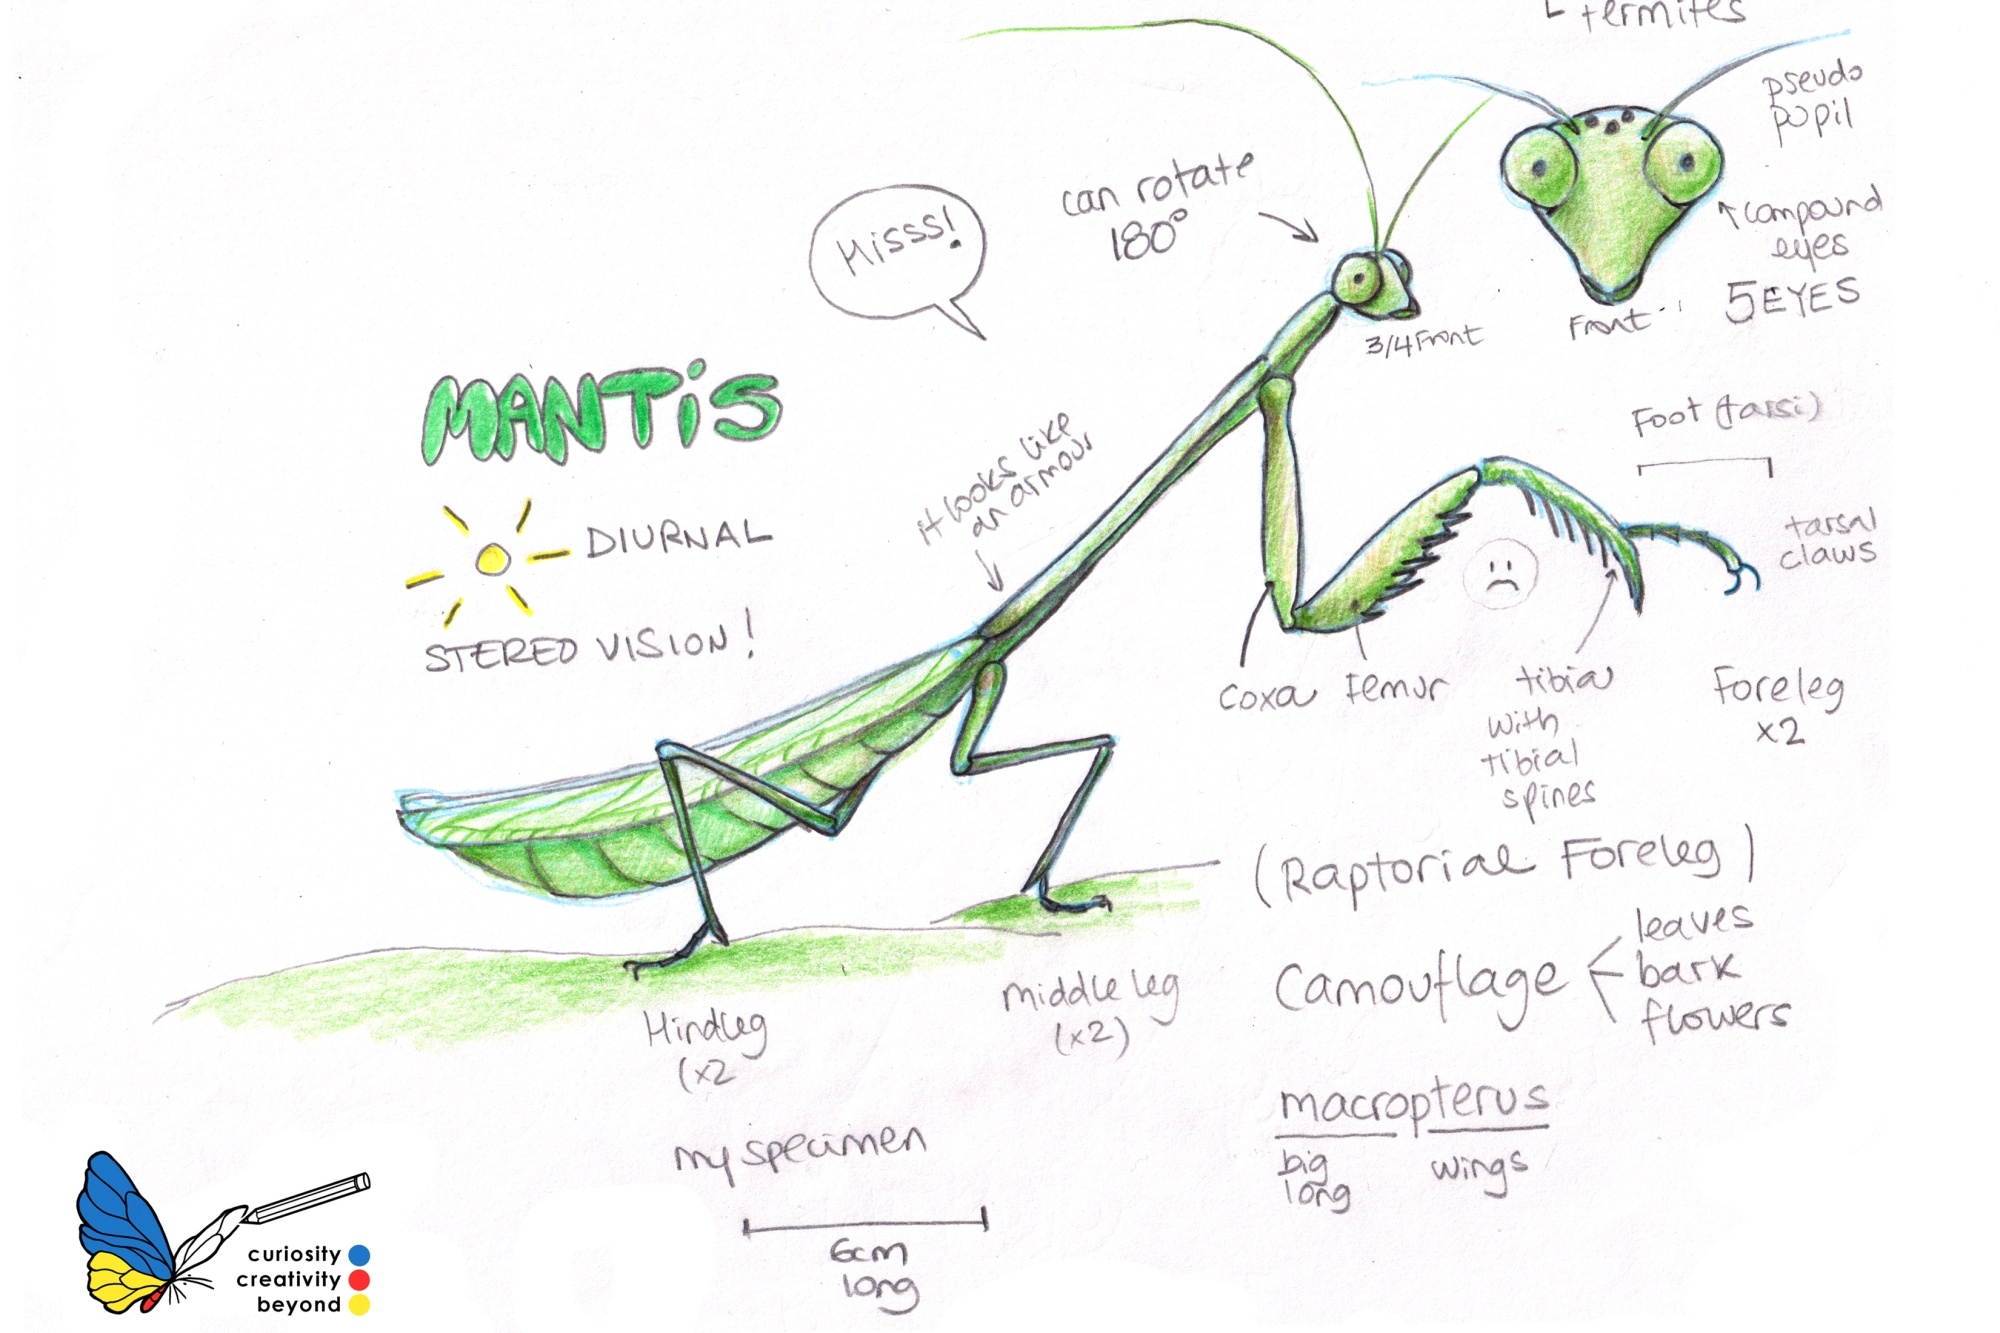 termites
pseudo
pupil
can rotate
180°
Hisss!
compound
eyes
5 EYES
Front
3/4 Front
MANTiS
Foot (tarsi)
it looks like
an armour
DIURNAL
tarsal
claws
STEREO VISION!
Coxa
Femur
tibia
with
tibial
spines
Foreleg
x2
(Raptorial Foreleg)
Camouflage
leaves
bark
flowers
Middle leg
(x2)
Hindleg
(x2
macropterus
big
long
wings
my specimen
6cm
long
curiosity
creativity
beyond